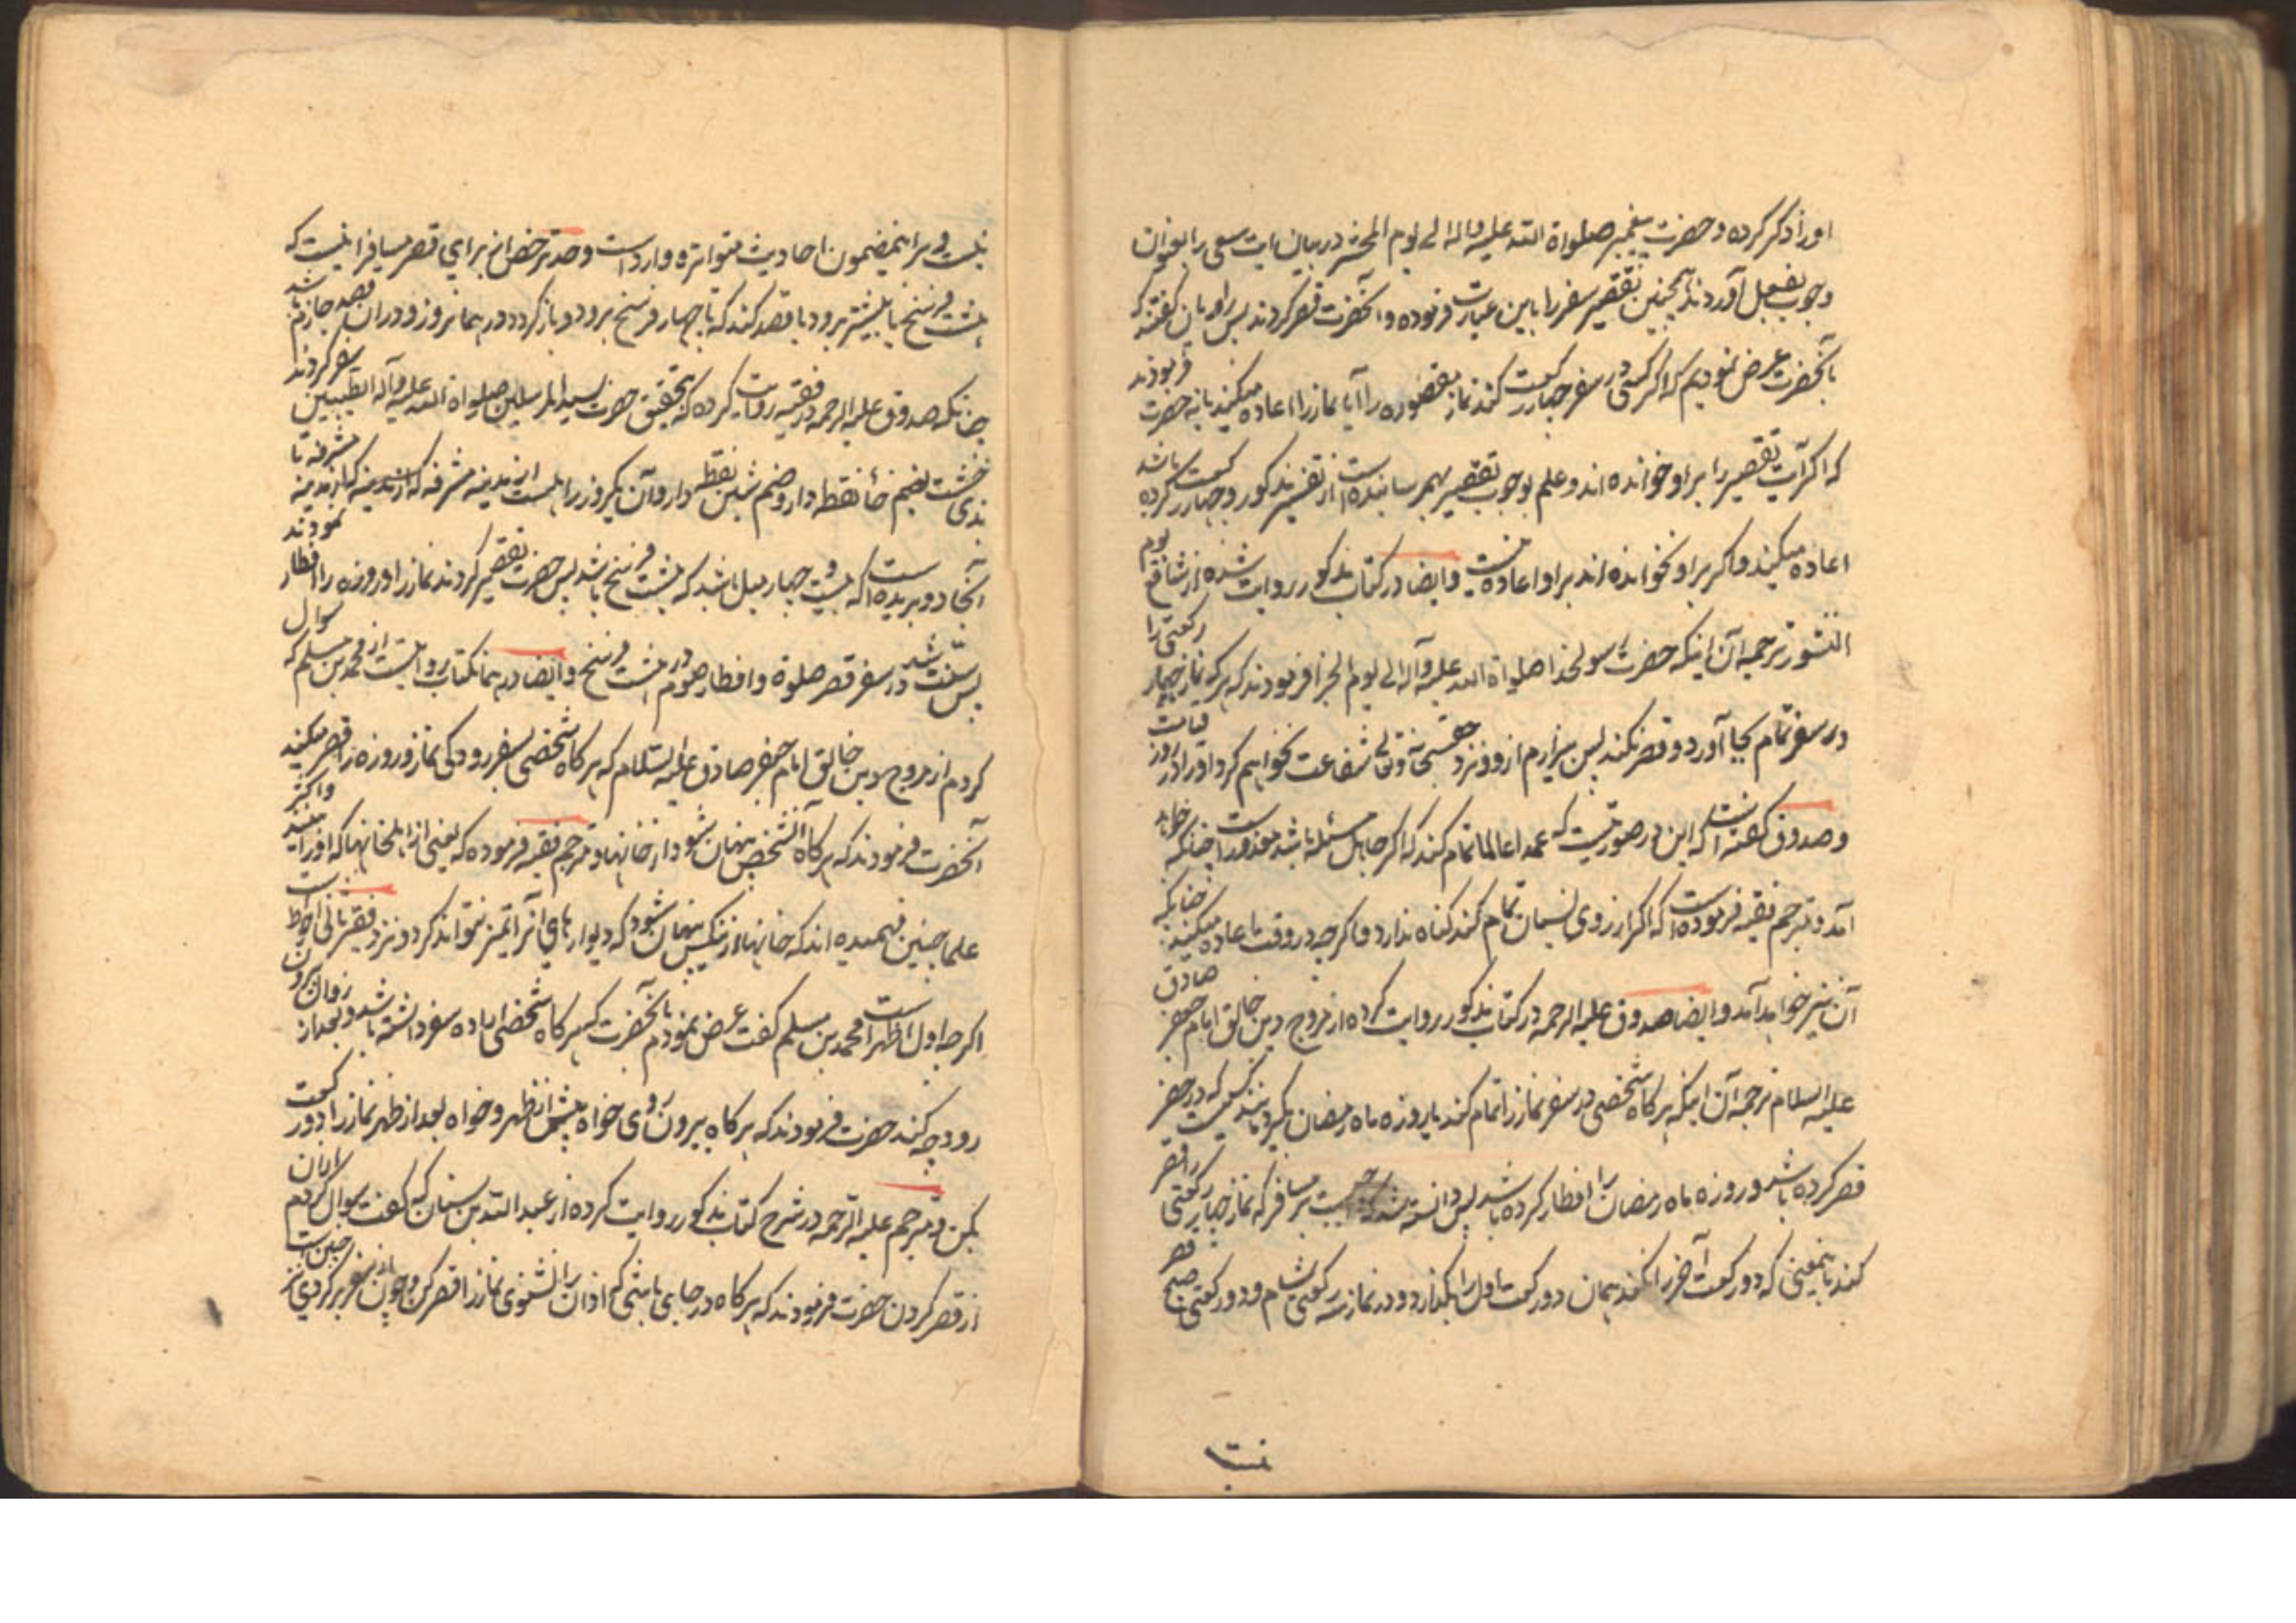 او را ذکر کرده و حضرت پیغمبر صلواة الله علیه و اله الی یوم المحشر در بیان ایت سعی را بعنوان
وجوب بفعل آوردند همچنین تقصیر سفر را باین عبارت فرموده و آنحضرت قصر کردند پس راویان گفتند که
بآنحضرت عرض نمودیم که اگر کسی در سفر چهار رکعت کند نماز مقصوره را آیا نماز را اعاده میکند یا نه حضرت فرمودند
که اگر آیت تقصیر را بر او خوانده اند و علم بوجوب تقصیر بهم رسانیده است از تفسیر مذکور و چهار رکعت کرده باشد
اعاده میکند و اگر بر او نخوانده اند بر او اعاده نیست و ایضا در کتاب مذکور روایت شده از شافع یوم
النشور ترجمه آن اینکه حضرت رسولخدا صلواة الله علیه و آله الی یوم الجزا فرمودند که هر که نماز چهار رکعتی را
در سفر تمام بجا آورد و قصر نکند پس بیزارم از او و نزد حقسبحانه و تعالی شفاعت نخواهم کرد او را در روز قیامت
و صدوق گفته است که این در صورتیست که عمدا عالما تمام کند که اگر جاهل مسئله باشد معذور است چنانکه خواهد
آمد و مترجم فقیه فرموده است که اگر از روی نسیان تمام کند گناه ندارد و اگر چه در وقت اعاده میکند چنانکه
آن نیز خواهد آمد و ایضا صدوق علیه الرحمه در کتاب مذکور روایت کرده از مروج دین خالق امام جعفر صادق
علیه السلام ترجمه آن اینکه هر گاه شخصی در سفر نماز را تمام کند یا روزه ماه رمضان بگیرد مانند کسیست که در حضر
قصر کرده باشد و روزه ماه رمضان را افطار کرده باشد پس دانسته شد که واجبست بر مسافر که نماز چهار رکعتی را قصر
کند باینمعنی که دو رکعت آخر را نکند همان دو رکعت اول را بگذارد و در نماز سه رکعتی شام و دو رکعتی صبح قصر
نیست
نیست و بر اینمضمون احادیث متواتره وارد است و حد ترخص از برای قصر مسافر اینست که
هشت فرسخ یا بیشتر برود یا قصد کند که تا چهار فرسخ برود و باز گردد در همانروز و در ان قصد جازم باشد
چنانکه صدوق علیه الرحمه در فقیه روایت کرده که بتحقیق حضرت سید المرسلین صلواة الله علیه و آله الطیبین سفر کردند
بذی خشت بضم خا نقطه دار و ضم شین نقطه دار و آن یکروزه راهست از مدینه مشرفه که از مدینه مشرفه تا
آنجا دو بریده است که بیست و چهار میل باشد که هشت فرسخ باشد پس حضرت تقصیر کردند نماز را و روزه را افطار نمودند
پس سنت شد در سفر قصر صلوة و افطار صوم در هشت فرسخ و ایضا در همانکتاب روایتست از محمد بن مسلم که سوال
کردم از مروج دین خالق امام جعفر صادق علیه السلام که هر گاه شخصی بسفر رود کی نماز و روزه را قصر میکند
آنحضرت فرمودند که هر گاه آنشخص پنهان شود از خانها و مترجم فقیه فرموده که یعنی از اهلخانها که او را نبینند و اکثر
علما چنین فهمیده اند که خانها از اینکس پنهان شود که دیوارهای انرا تمیز نتواند کرد و نزد فقیر ثانی احوط است
اگر چه اول اظهر است محمد بن مسلم گفت عرض نمودم بآنحضرت که هر گاه شخصی اراده سفر داشته باشد و بعد از زوال بیرون
رود چه کند حضرت فرمودند که هر گاه بیرون روی خواه پیش از ظهر و خواه بعد از ظهر نماز را دو رکعت
بکن و مترجم علیه الرحمه در شرح کتاب مذکور روایت کرده از عبد الله بن سنان که گفت سوال کردم از ان
از قصر کردن حضرت فرمودند که هر گاه در جای باشی که اذان را نشنوی نماز را قصر کن و چون از سفر برگردی نیز چنین است